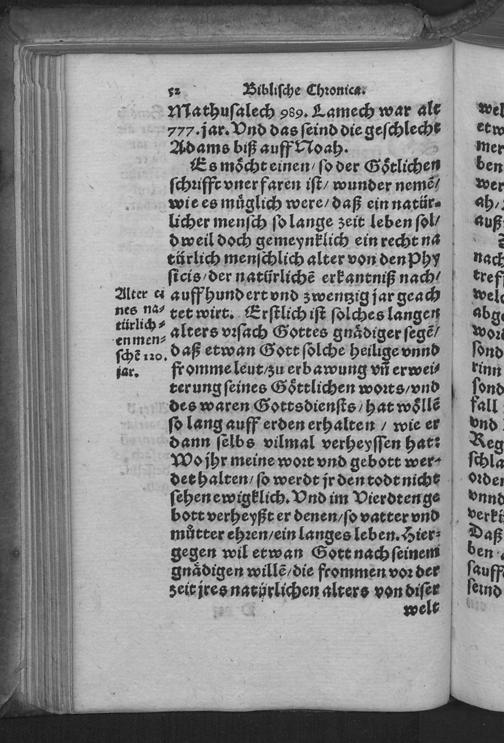 52 Biblische Chronica.
Mathusalech 989. Lamech war alt
777. jar. Vnd das seind die geschlecht
Adams biß auff Noah.
Es möcht einen/ so der Götlichen
schrifft vnerfaren ist/ wunder nemē/
wie es müglich were/ daß ein natür-
licher mensch so lange zeit leben sol/
dweil doch gemeynklich ein recht na
türlich menschlich alter von den Phy
sicis/ der natürlichē erkantniß nach/
auff hundert vnd zwentzig jar geach
tet wirt. Erstlich ist solches langen
alters vrsach Gottes gnädiger segē/
daß etwan Gott solche heilige vnnd
fromme leut/ zu erbawung vn̄ erwei-
terung seines Göttlichen worts/ vnd
des waren Gottsdiensts/ hat wöllē
so lang auff erden erhalten/ wie er
dann selbs vilmal verheyssen hat:
Wo jhr meine wort vnd gebott wer-
det halten/ so werdt jr den todt nicht
sehen ewigklich. Vnd im Vierdten ge
bott verheyßt er denen/ so vatter vnd
můtter ehren/ ein langes leben. Hier-
gegen wil etwan Gott nach seinem
gnädigen willē/ die frommen vor der
zeit jres natürlichen alters von diser
welt
Alter ei
nes na-
türlich-
en men-
schē 120.
jar.
wel
etw
mer
ben
wer
ah/
auß
nach
tref
welc
abge
wor
sond
rinn
sond
fall
vnd
Reg
schla
orden
vnnd
verki
Daß
ben
sauff
seind